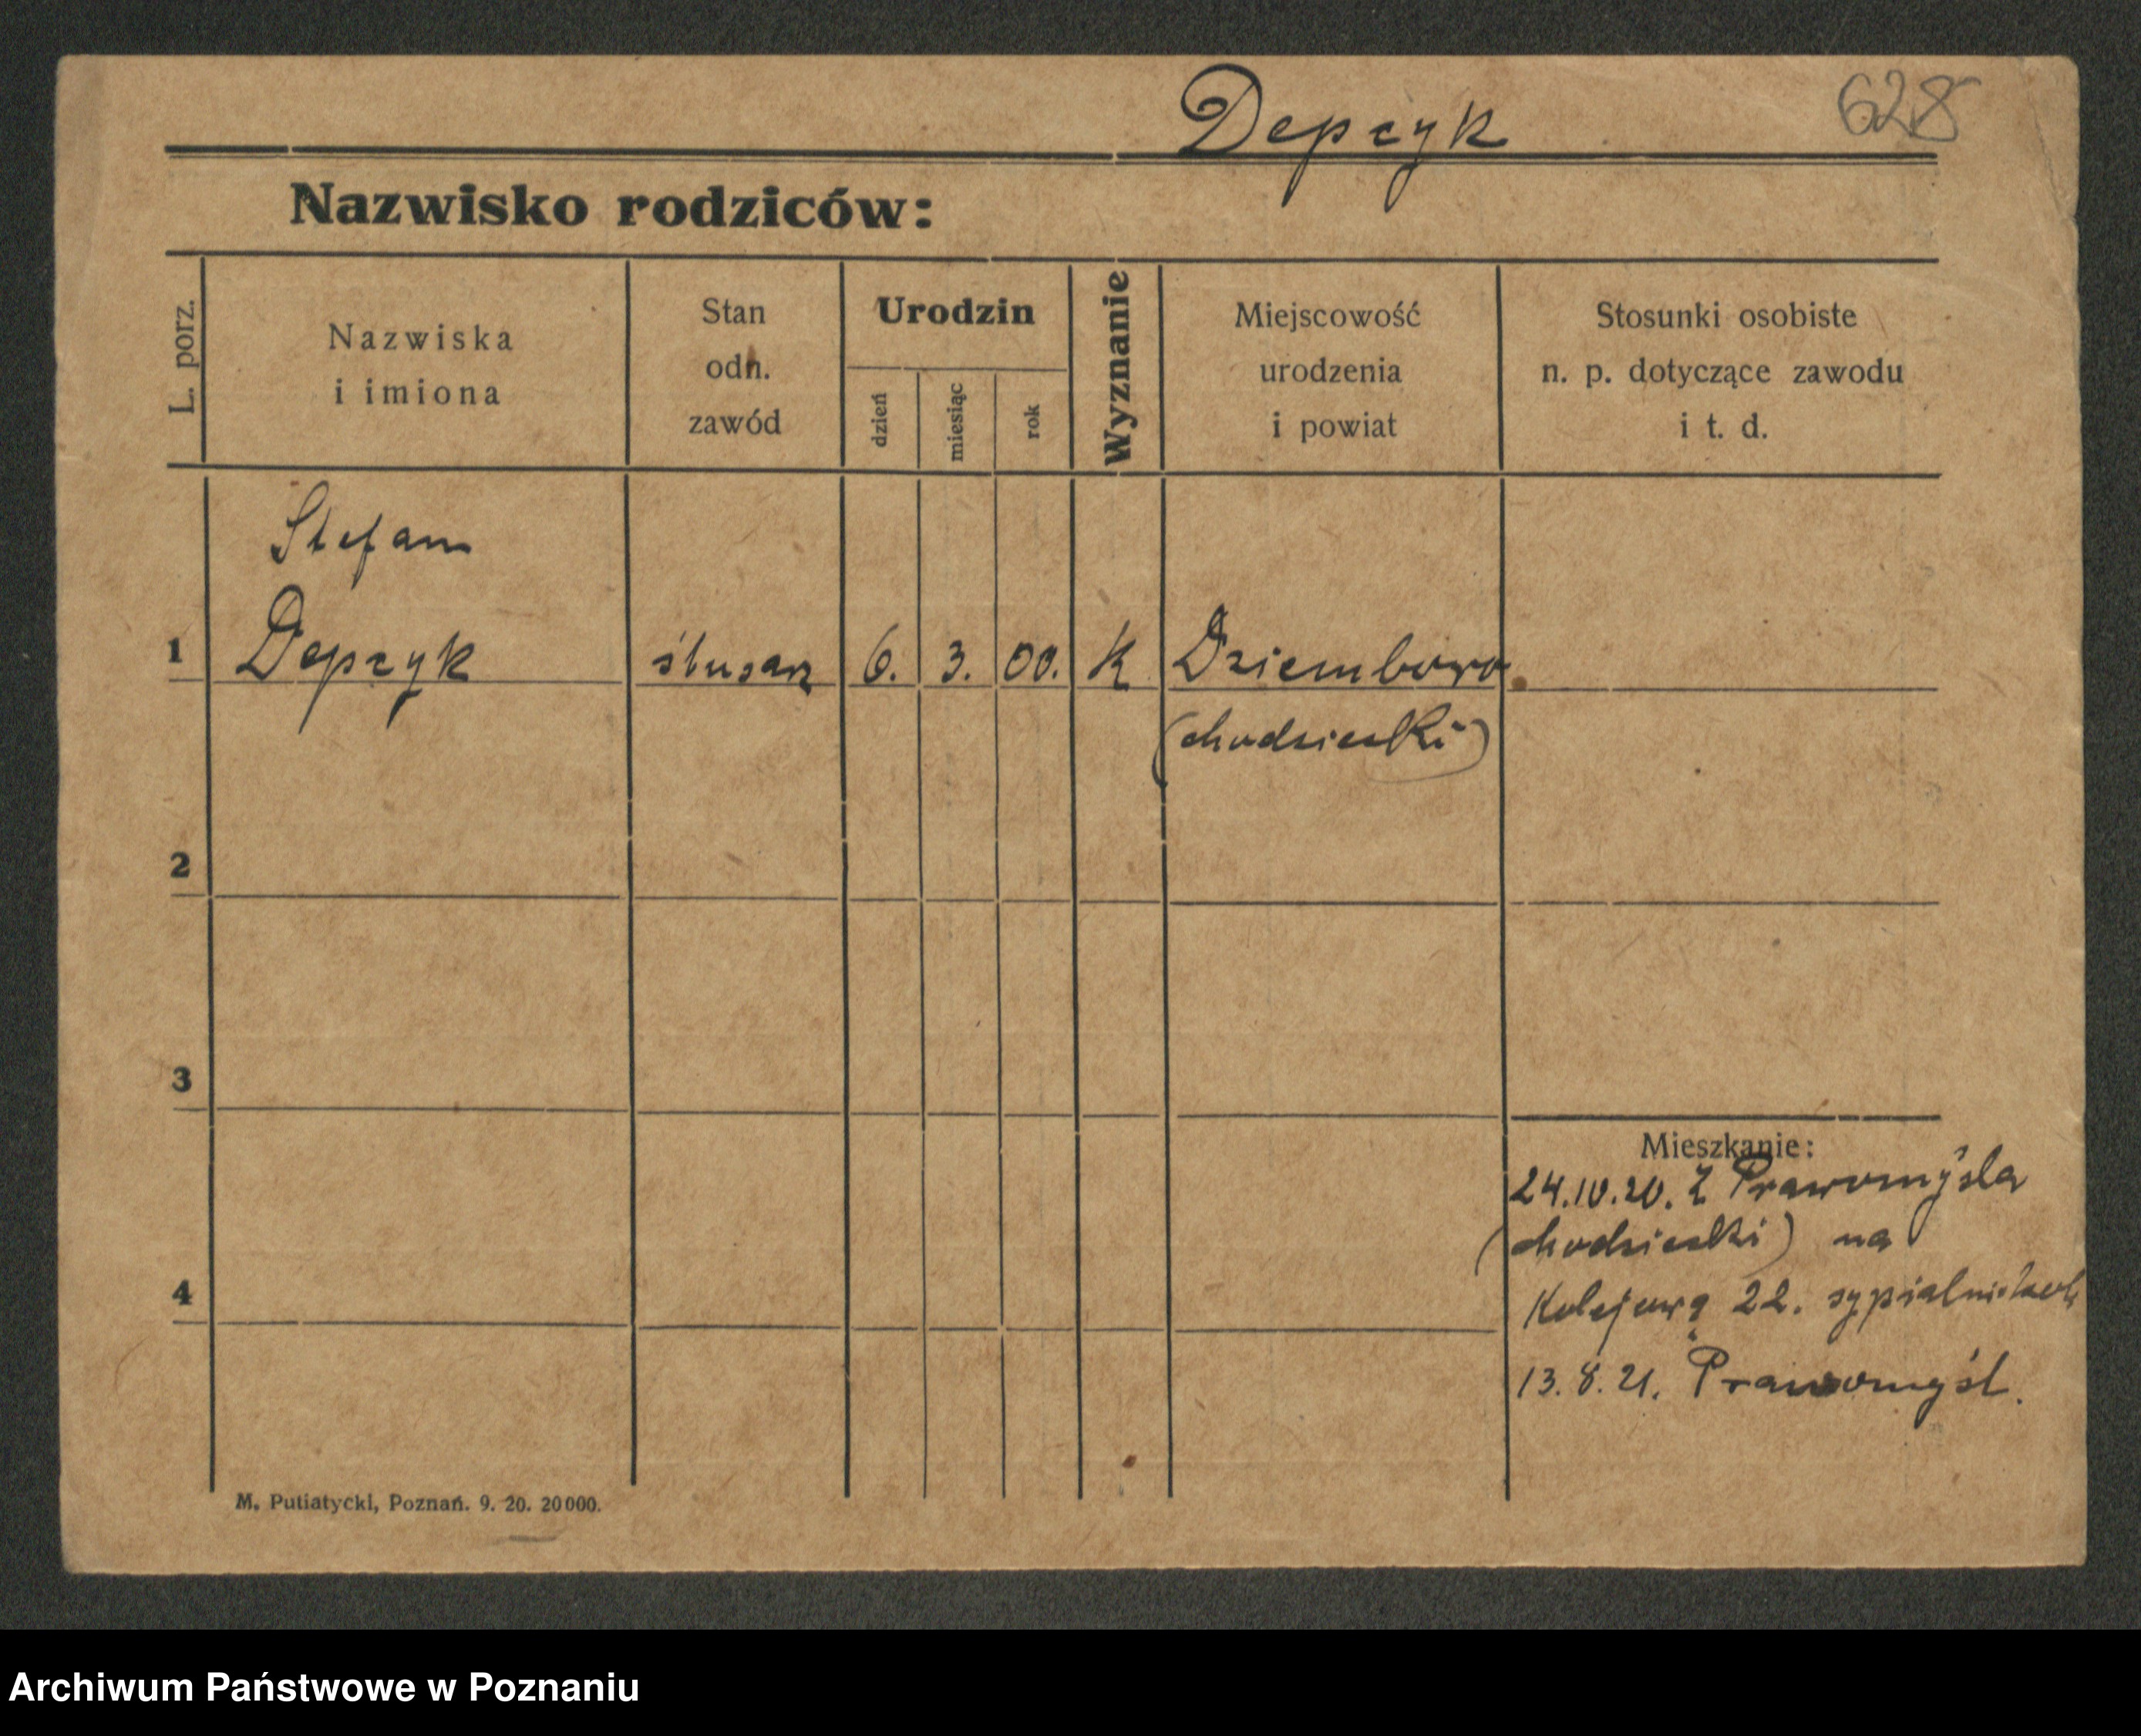 Depczyk
628
Nazwisko rodziców:
L. porz.
Nazwiska
i imiona
Stan
odn.
zawód
Urodzin
dzień
miesiąc
rok
Wyznanie
Miejscowość
urodzenia
i powiat
Stosunki osobiste
n. p. dotyczące zawodu
i t. d.
Stefan
1 Depczyk ślusarz 6. 3. 00. K Dziembowo
(chodzieski)
2
3
4
Mieszkanie:
24.10.20. Z Prawomyśla
(chodzieski) na
Kolejową 22.
13.8.21. Prawomyśl.
M. Putiatycki, Poznań. 9. 20. 20000.
Archiwum Państwowe w Poznaniu